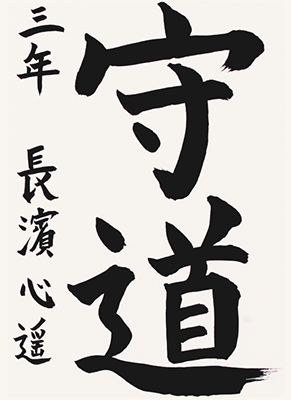 守道
三年 長濱心遥